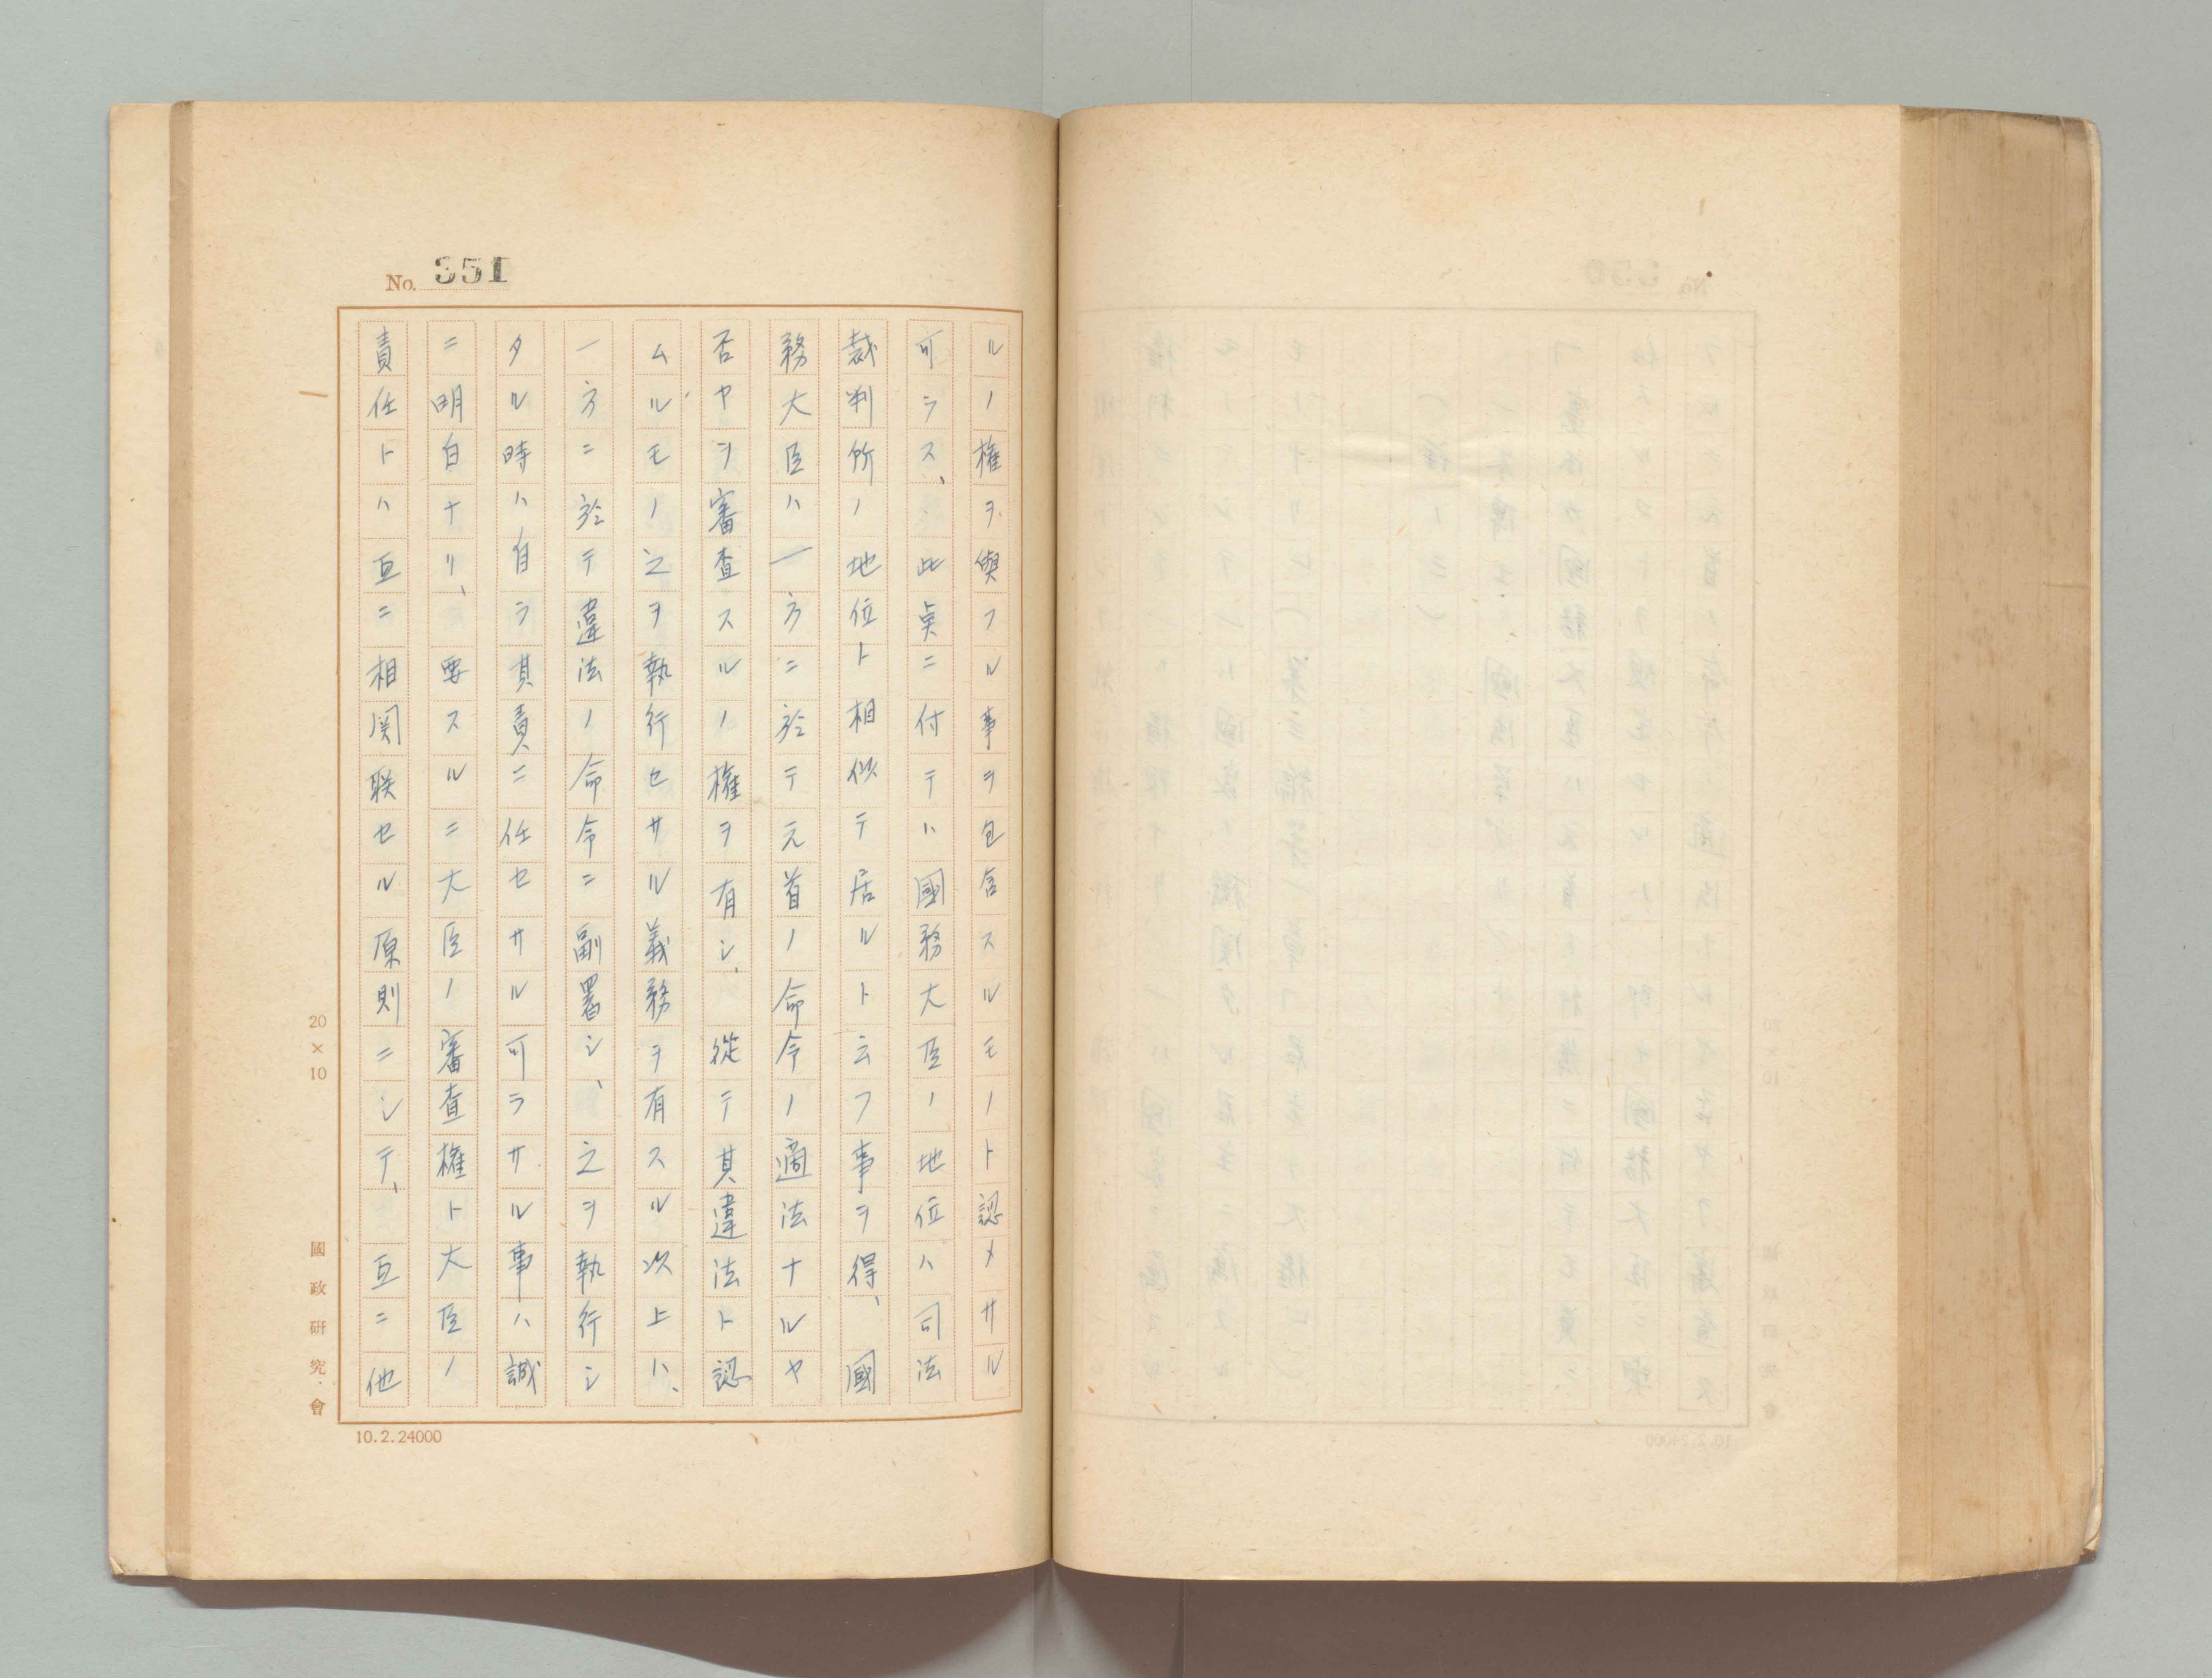 No. 351
ルノ権ヲ與フル事ヲ包含スルモノト認メサル
可ラス、此点ニ付テハ國務大臣ノ地位ハ司法
裁判所ノ地位ト相似テ居ルト云フ事ヲ得、國
務大臣ハ一方ニ於テ元首ノ命令ノ適法ナルヤ
否ヤヲ審査スルノ権ヲ有シ、從テ其違法ト認
ムルモノ之ヲ執行セサル義務ヲ有スル以上ハ、
一方ニ於テ違法ノ命令ニ副署シ、之ヲ執行シ
タル時ハ自ラ其責ニ任セサル可ラサル事ハ誠
ニ明白ナリ、要スルニ大臣ノ審査権ト大臣ノ
責任トハ互ニ相関联セル原則ニシテ、互ニ他
20×10
國政研究會
10.2.24000